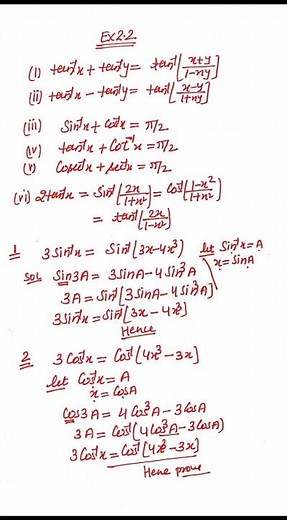 Ex 2.2
(i) tan⁻¹x + tan⁻¹y = tan⁻¹[x+y/1-xy]
(ii) tan⁻¹x - tan⁻¹y = tan⁻¹[x-y/1+xy]
(iii) Sin⁻¹x + Cos⁻¹x = π/2
(iv) tan⁻¹x + Cot⁻¹x = π/2
(v) Cosec⁻¹x + sec⁻¹x = π/2
(vi) 2tan⁻¹x = Sin⁻¹[2x/1+x²] = Cos⁻¹[1-x²/1+x²]
= tan⁻¹[2x/1-x²]
1 3Sin⁻¹x = Sin⁻¹(3x-4x³) let Sin⁻¹x = A
x = SinA
Sol Sin3A = 3SinA - 4Sin³A
3A = Sin⁻¹[3SinA - 4Sin³A]
3Sin⁻¹x = Sin⁻¹[3x - 4x³]
Hence
2 3Cos⁻¹x = Cos⁻¹[4x³ - 3x]
let Cos⁻¹x = A
x = CosA
Cos3A = 4Cos³A - 3CosA
3A = Cos⁻¹(4Cos³A - 3CosA)
3Cos⁻¹x = Cos⁻¹[4x³ - 3x]
Hence prove